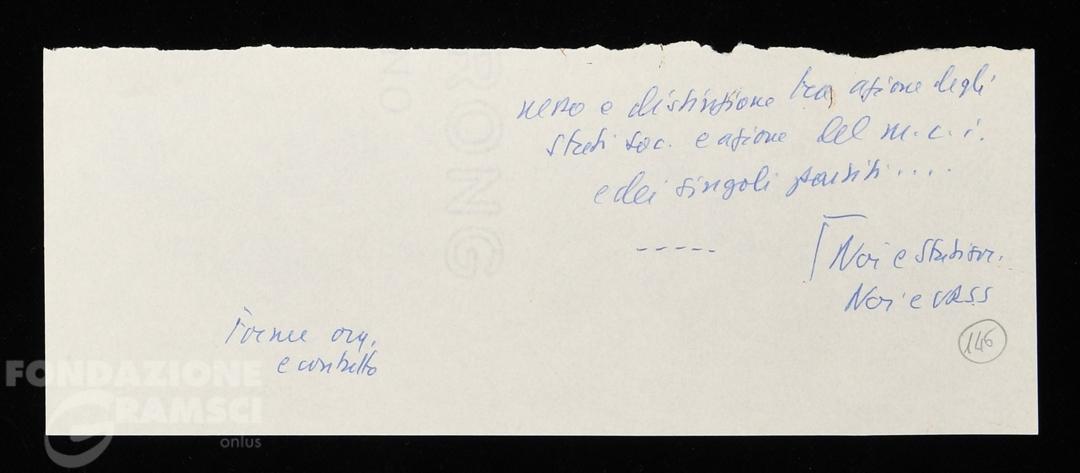 nesso e distinzione tra azione degli
stati soc. e azione del m.c.i.
e dei singoli partiti....
-----
Noi e stati soc.
Noi e URSS
146
Forme org.
e contatto
FONDAZIONE
GRAMSCI
onlus
RONG